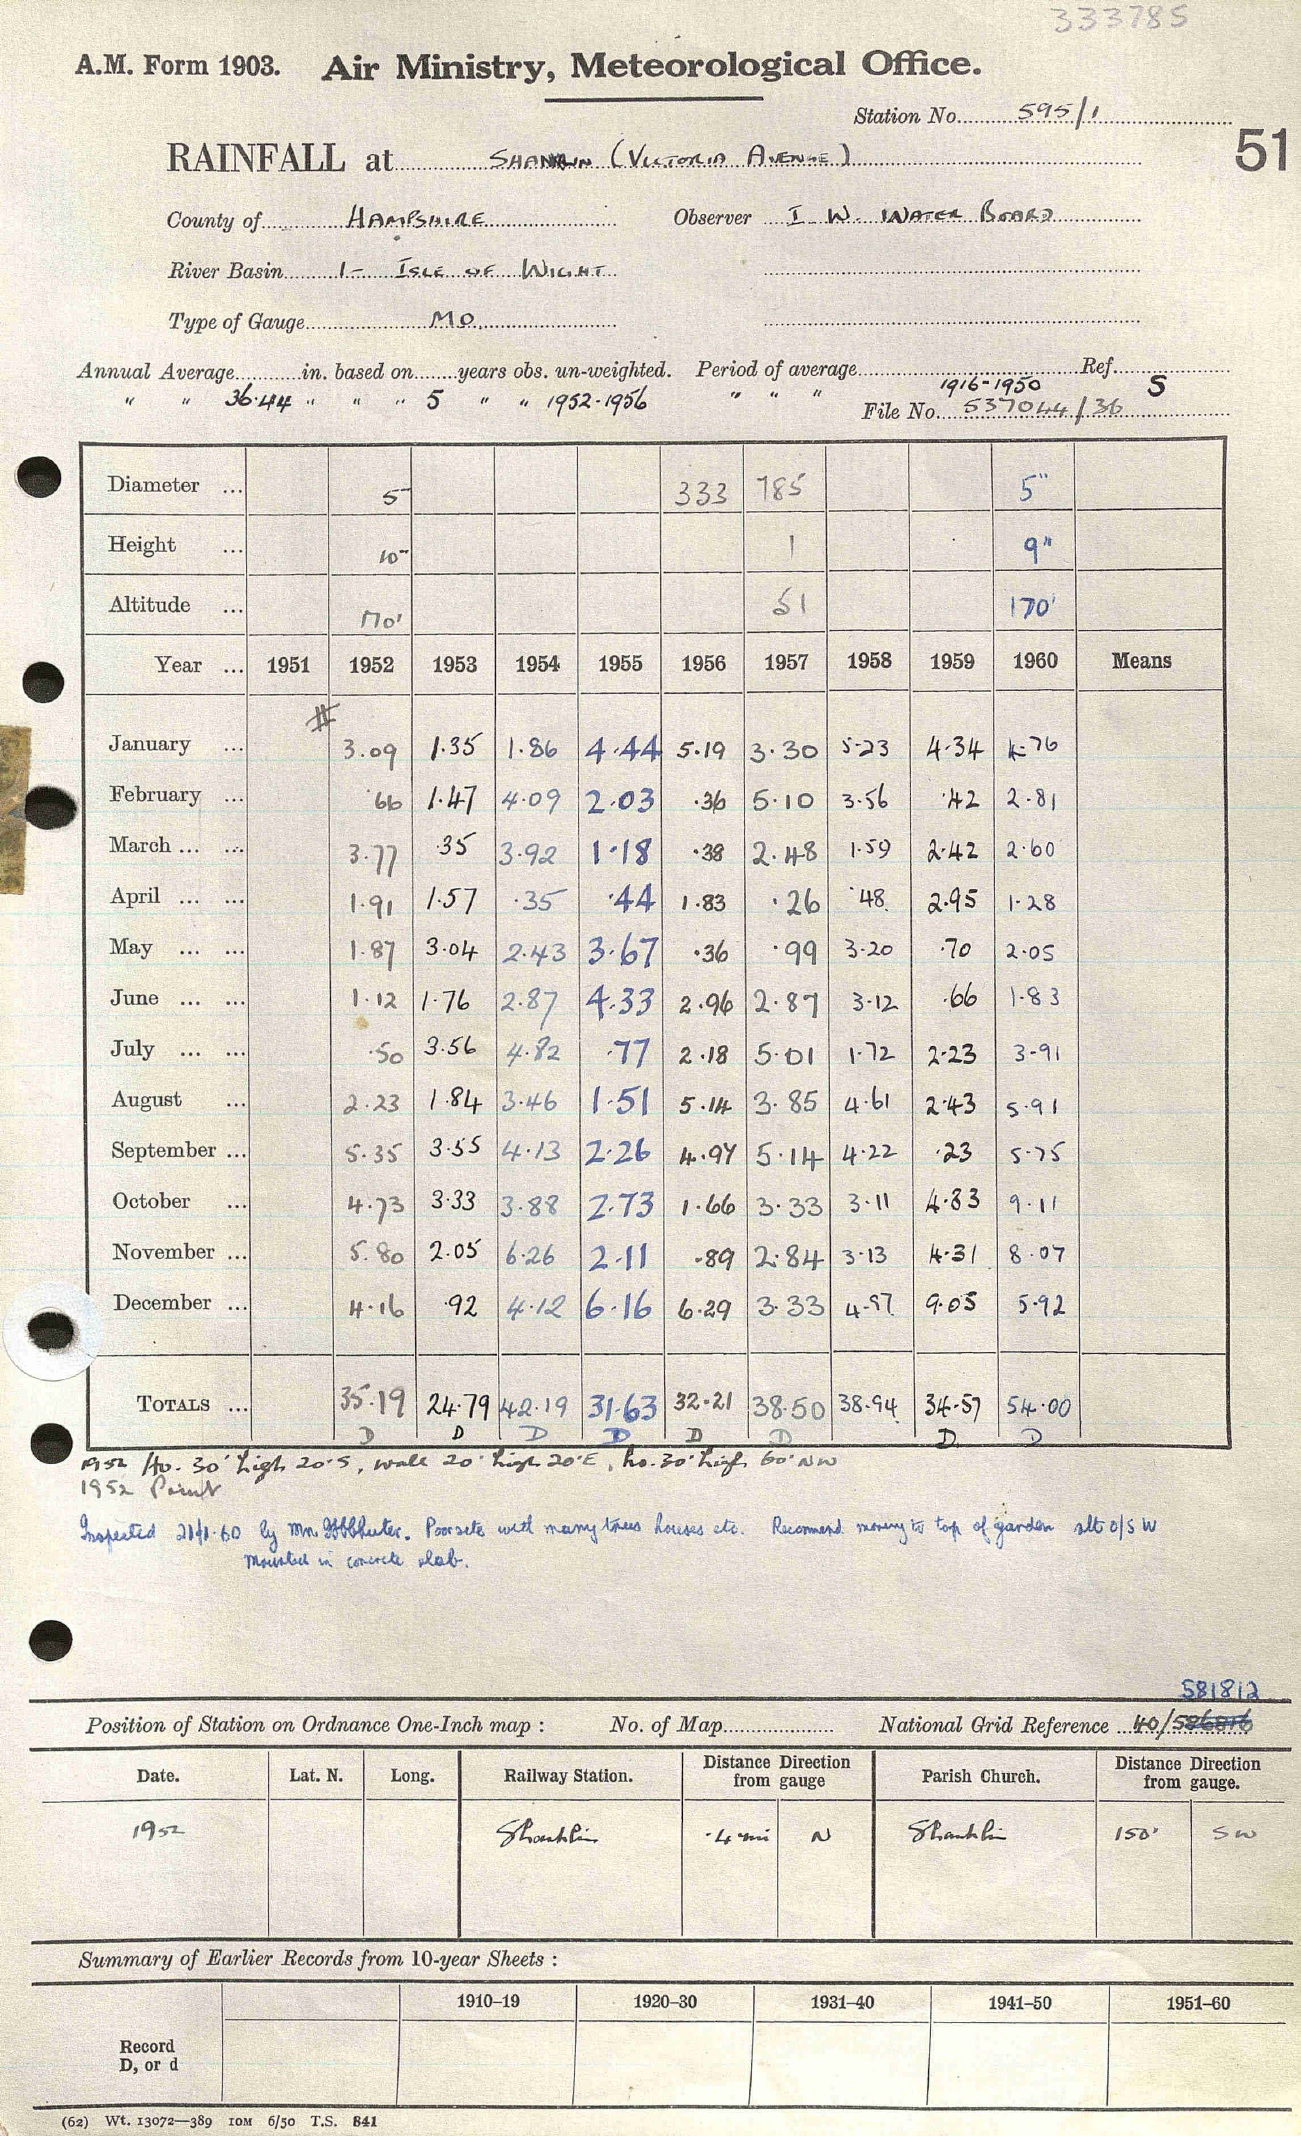 333785
A.M. Form 1903. Air Ministry, Meteorological Office.
Station No. 595/1
51
RAINFALL at SHANKLIN (VICTORIA AVENUE)
County of HAMPSHIRE Observer I. W. WATER BOARD
River Basin 1- ISLE OF WIGHT
Type of Gauge MO
Annual Average in. based on years obs. un-weighted. Period of average 1916-1950 Ref. S
" " 36.44 " " " 5 " " 1952-1956 " " " File No. 537044/36
Diameter ... 5" 333 785 5"
Height ... 10" 1 9"
Altitude ... 170' 51 170'
Year ... 1951 1952 1953 1954 1955 1956 1957 1958 1959 1960 Means
January ... 3.09 1.35 1.86 4.44 5.19 3.30 5.23 4.34 4.76
February ... .66 1.47 4.09 2.03 .36 5.10 3.56 .42 2.81
March ... ... 3.77 .35 3.92 1.18 .38 2.48 1.59 2.42 2.60
April ... ... 1.91 1.57 .35 .44 1.83 .26 .48 2.95 1.28
May ... ... 1.87 3.04 2.43 3.67 .36 .99 3.20 .70 2.05
June ... ... 1.12 1.76 2.87 4.33 2.96 2.87 3.12 .66 1.83
July ... ... .50 3.56 4.82 .77 2.18 5.01 1.72 2.23 3.91
August ... 2.23 1.84 3.46 1.51 5.14 3.85 4.61 2.43 5.91
September ... 5.35 3.55 4.13 2.26 4.97 5.14 4.22 .23 5.75
October ... 4.73 3.33 3.88 2.73 1.66 3.33 3.11 4.83 9.11
November ... 5.80 2.05 6.26 2.11 .89 2.84 3.13 4.31 8.07
December ... 4.16 .92 4.12 6.16 6.29 3.33 4.97 9.05 5.92
TOTALS ... 35.19 24.79 42.19 31.63 32.21 38.50 38.94 34.57 54.00
D D D D D D D D
1952 Ho. 30' high 20'S, wall 20' high 20'E, ho. 30' high 60' NW
1952 Point
Inspected 60 by Mr. Poor site with many trees houses etc. Recommend moving to top of garden alt O/S W
Mounted in concrete slab.
581812
Position of Station on Ordnance One-Inch map : No. of Map National Grid Reference 40/586816
Date. Lat. N. Long. Railway Station. Distance from gauge Direction Parish Church. Distance from gauge. Direction
1952 Shanklin .4 mi N Shanklin 150' SW
Summary of Earlier Records from 10-year Sheets :
1910–19 1920–30 1931–40 1941–50 1951–60
Record
D, or d
(62) Wt. 13072—389 10M 6/50 T.S. 841